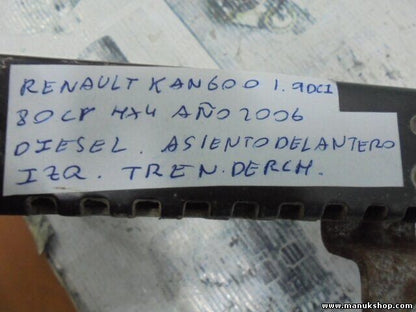 RENAULT KANGOO 1.9DCI
80CV 4X4 AÑO 2006
DIESEL. ASIENTO DELANTERO
IZQ. TREN. DERCH.
www.manukshop.com